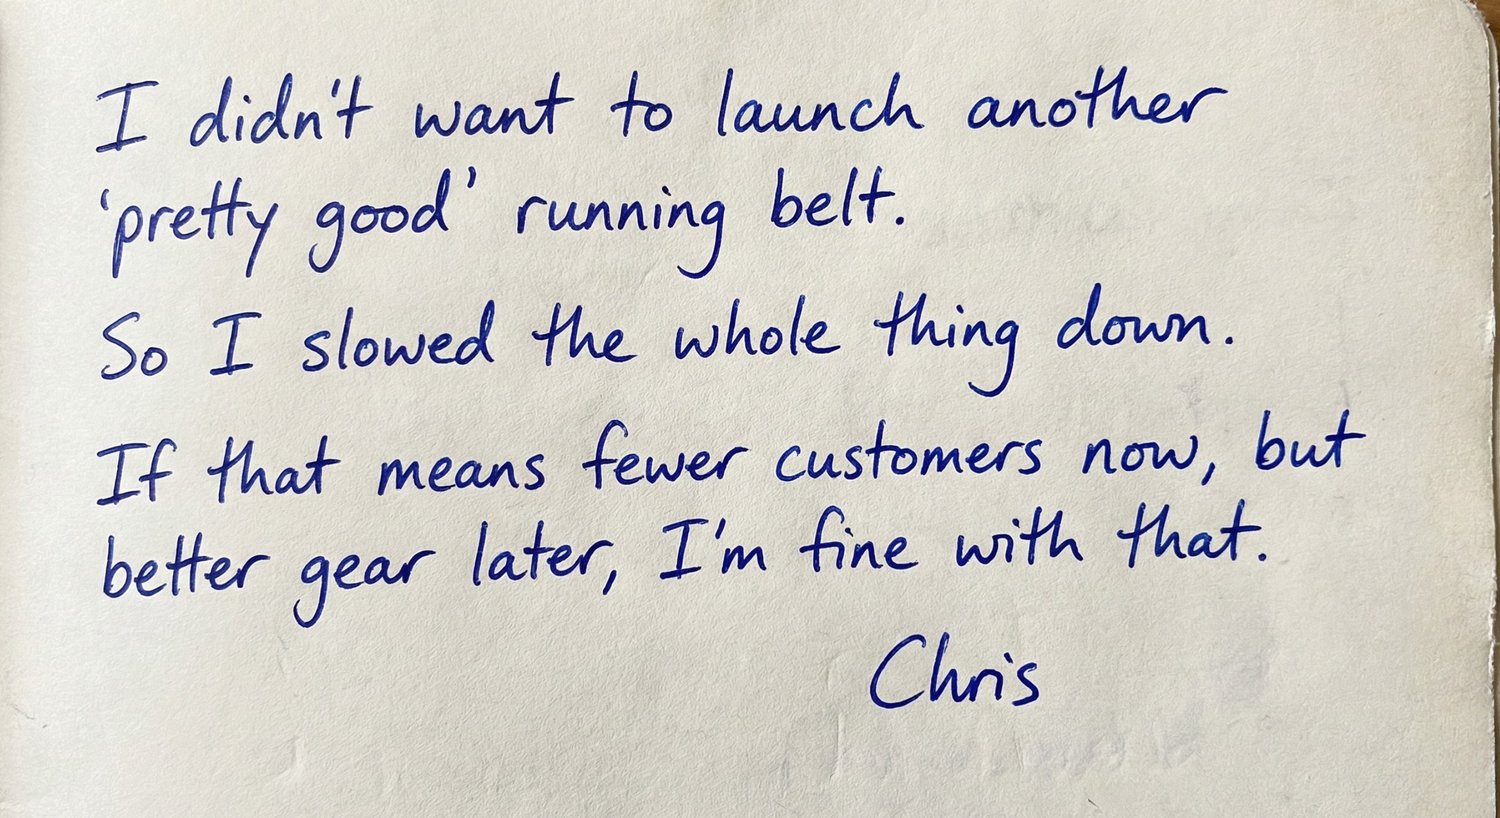 I didn't want to launch another
'pretty good' running belt.
So I slowed the whole thing down.
If that means fewer customers now, but
better gear later, I'm fine with that.
Chris